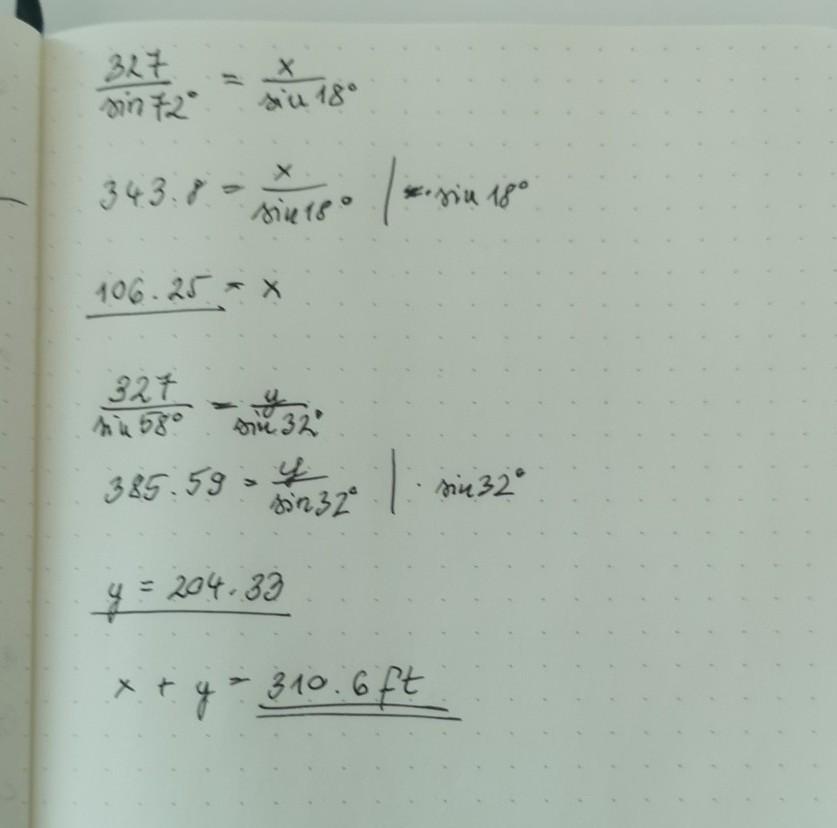 327/sin 72° = x/sin 18°
343.8 = x/sin 18° | · sin 18°
106.25 = x
327/sin 58° = y/sin 32°
385.59 = y/sin 32° | · sin 32°
y = 204.33
x + y = 310.6 ft